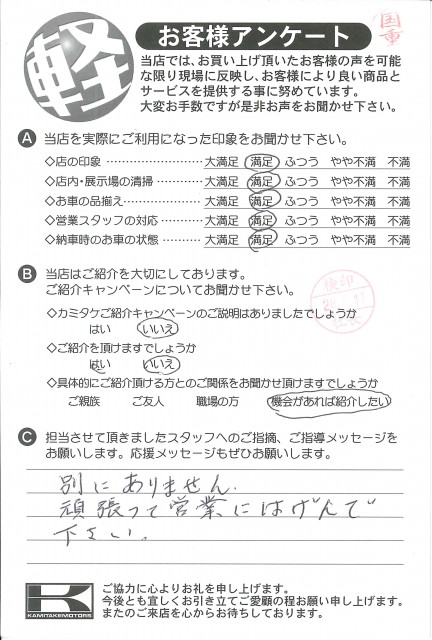 国重
軽
お客様アンケート
当店では、お買い上げ頂いたお客様の声を可能
な限り現場に反映し、お客様により良い商品と
サービスを提供する事に努めています。
大変お手数ですが是非お声をお聞かせ下さい。
A 当店を実際にご利用になった印象をお聞かせ下さい。
◇店の印象 ························ 大満足 満足 ふつう やや不満 不満
◇店内・展示場の清掃 ············ 大満足 満足 ふつう やや不満 不満
◇お車の品揃え ···················· 大満足 満足 ふつう やや不満 不満
◇営業スタッフの対応 ··········· 大満足 満足 ふつう やや不満 不満
◇納車時のお車の状態 ··········· 大満足 満足 ふつう やや不満 不満
B 当店はご紹介を大切にしております。
ご紹介キャンペーンについてお聞かせ下さい。
◇カミタケご紹介キャンペーンのご説明はありましたでしょうか
はい いいえ
◇ご紹介を頂けますでしょうか
はい いいえ
◇具体的にご紹介頂ける方とのご関係をお聞かせ頂けますでしょうか
ご親族 ご友人 職場の方 機会があれば紹介したい
C 担当させて頂きましたスタッフへのご指摘、ご指導メッセージを
お願いします。応援メッセージもぜひお願いします。
別にありません.
頑張って営業にはげんで
下さい.
K
KAMITAKEMOTORS
ご協力に心よりお礼を申し上げます。
今後とも宜しくお引き立てご愛顧の程お願い申し上げます。
またのご来店を心からお待ちしております。